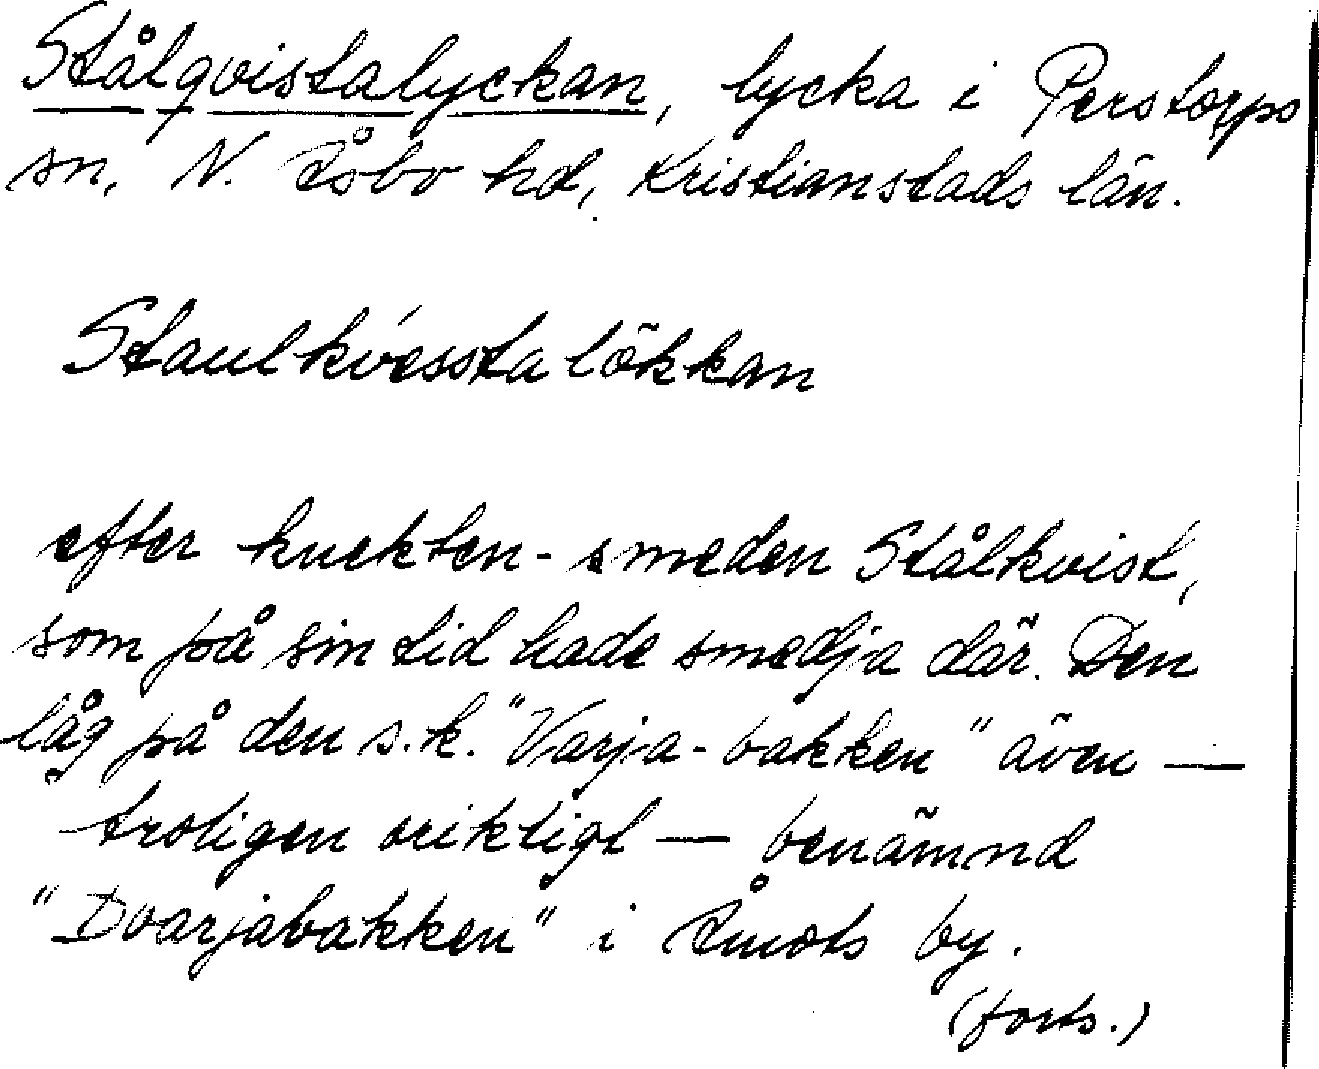 Stålqvistalyckan, lycka i Perstorps
sn, N. Åsbo hd, Kristianstads län.
Staulkvesstalökkan
efter knekten-smeden Stålkvist,
som på sin tid hade smedja där. Den
låg på den s.k. "Varja-bakken" även —
troligen oriktigt — benämnd
"Dvarjabakken" i Åmots by.
(forts.)